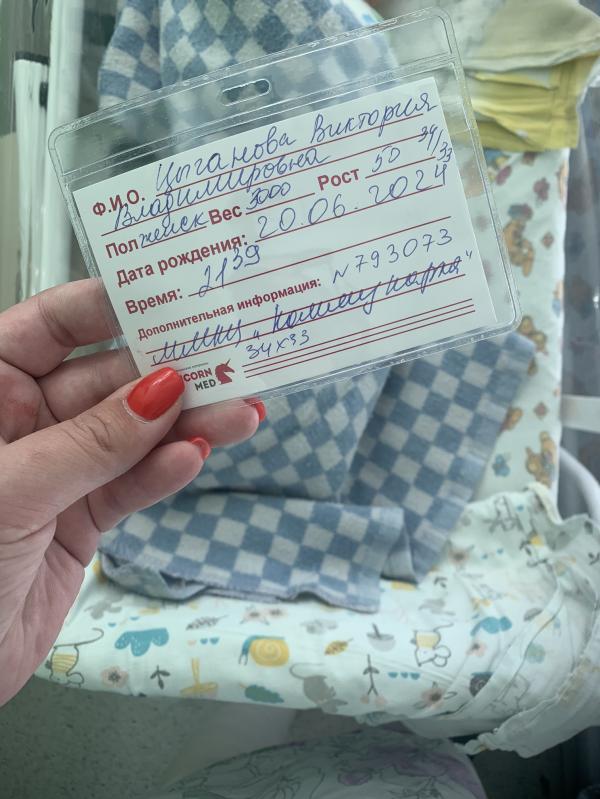 Ф.И.О. Цыганова Виктория
Владимировна
Пол женск Вес 3000 Рост 50 34/33
Дата рождения: 20.06.2024
Время: 21 39
Дополнительная информация: N793073
"Коммунарка"
34x33
CORN
MED